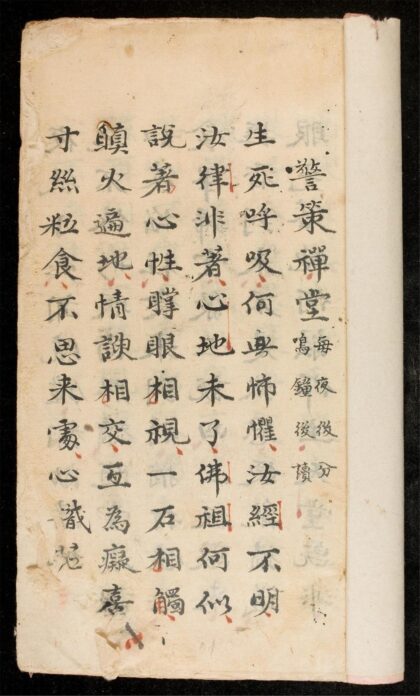 警策禪堂
每夜後分
鳴鐘後讀
生死呼吸何怖懼汝經不明
汝律非著心地未了佛祖何似
說著心性眼相視一石相觸
瞋火遍地情諛相交互為癡喜
寸絲粒食不思来處心識